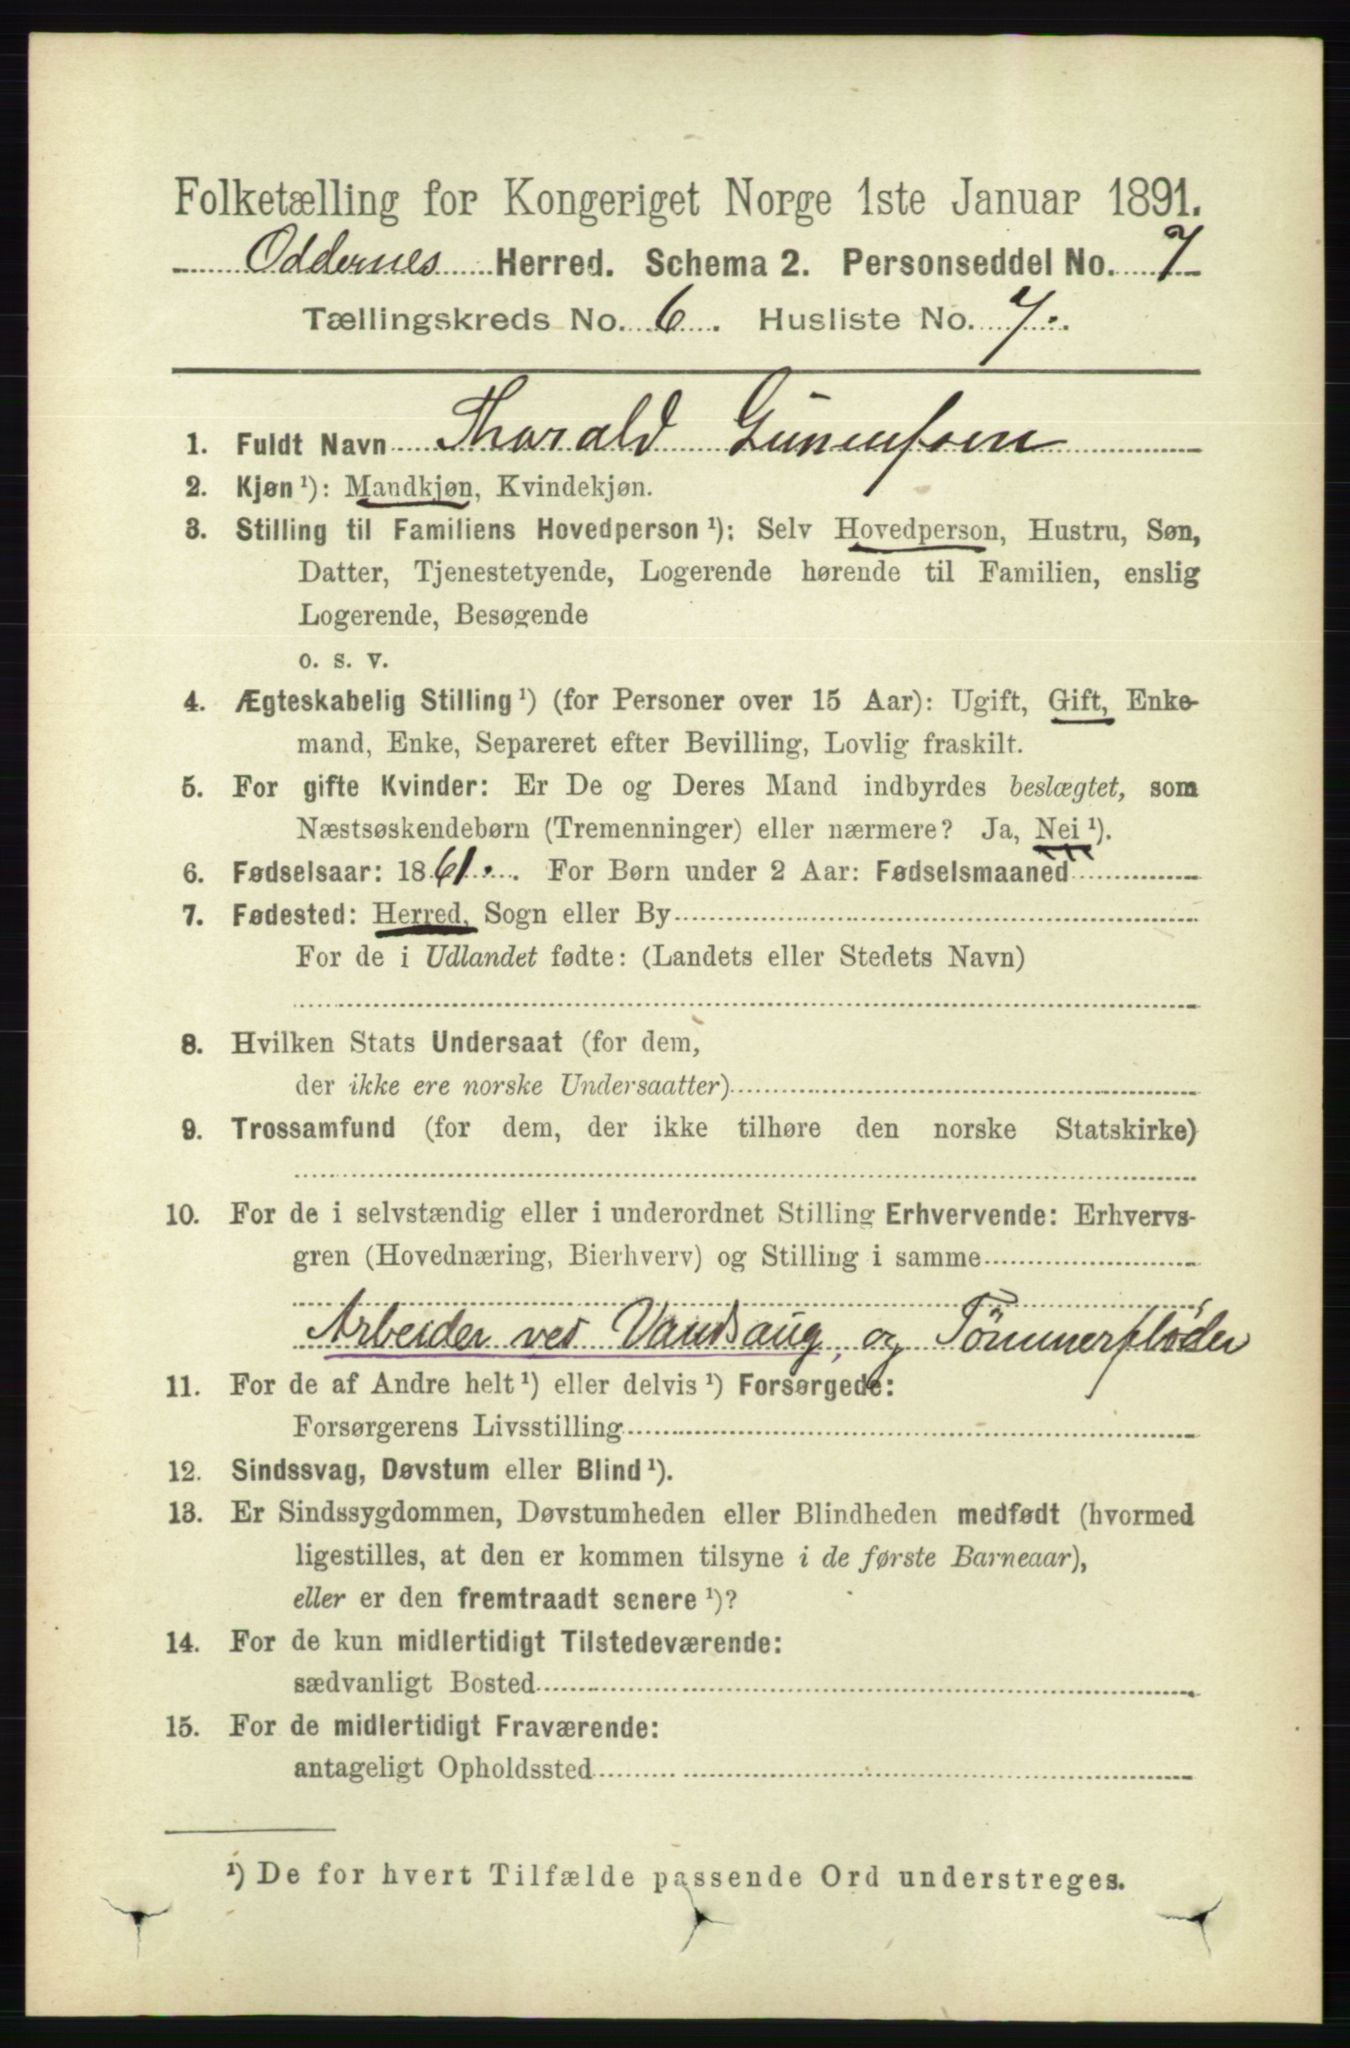 Folketælling for Kongeriget Norge 1ste Januar 1891.
Oddernes Herred. Schema 2. Personseddel No. 7
Tællingskreds No. 6. Husliste No. 7.
1. Fuldt Navn Tharald Gunensen
2. Kjøn ¹): Mandkjøn, Kvindekjøn.
3. Stilling til Familiens Hovedperson ¹): Selv Hovedperson, Hustru, Søn,
Datter, Tjenestetyende, Logerende hørende til Familien, enslig
Logerende, Besøgende
o. s. v.
4. Ægteskabelig Stilling ¹) (for Personer over 15 Aar): Ugift, Gift, Enke-
mand, Enke, Separeret efter Bevilling, Lovlig fraskilt.
5. For gifte Kvinder: Er De og Deres Mand indbyrdes beslægtet, som
Næstsøskendebørn (Tremenninger) eller nærmere? Ja, Nei ¹).
6. Fødselsaar: 1861. For Børn under 2 Aar: Fødselsmaaned
7. Fødested: Herred, Sogn eller By
For de i Udlandet fødte: (Landets eller Stedets Navn)
8. Hvilken Stats Undersaat (for dem,
der ikke ere norske Undersaatter)
9. Trossamfund (for dem, der ikke tilhøre den norske Statskirke)
10. For de i selvstændig eller i underordnet Stilling Erhvervende: Erhvervs-
gren (Hovednæring, Bierhverv) og Stilling i samme
Arbeider ved Vandsaug, og Tömmerflöder
11. For de af Andre helt ¹) eller delvis ¹) Forsørgede:
Forsørgerens Livsstilling
12. Sindssvag, Døvstum eller Blind ¹).
13. Er Sindssygdommen, Døvstumheden eller Blindheden medfødt (hvormed
ligestilles, at den er kommen tilsyne i de første Barneaar),
eller er den fremtraadt senere ¹)?
14. For de kun midlertidigt Tilstedeværende:
sædvanligt Bosted
15. For de midlertidigt Fraværende:
antageligt Opholdssted
¹) De for hvert Tilfælde passende Ord understreges.